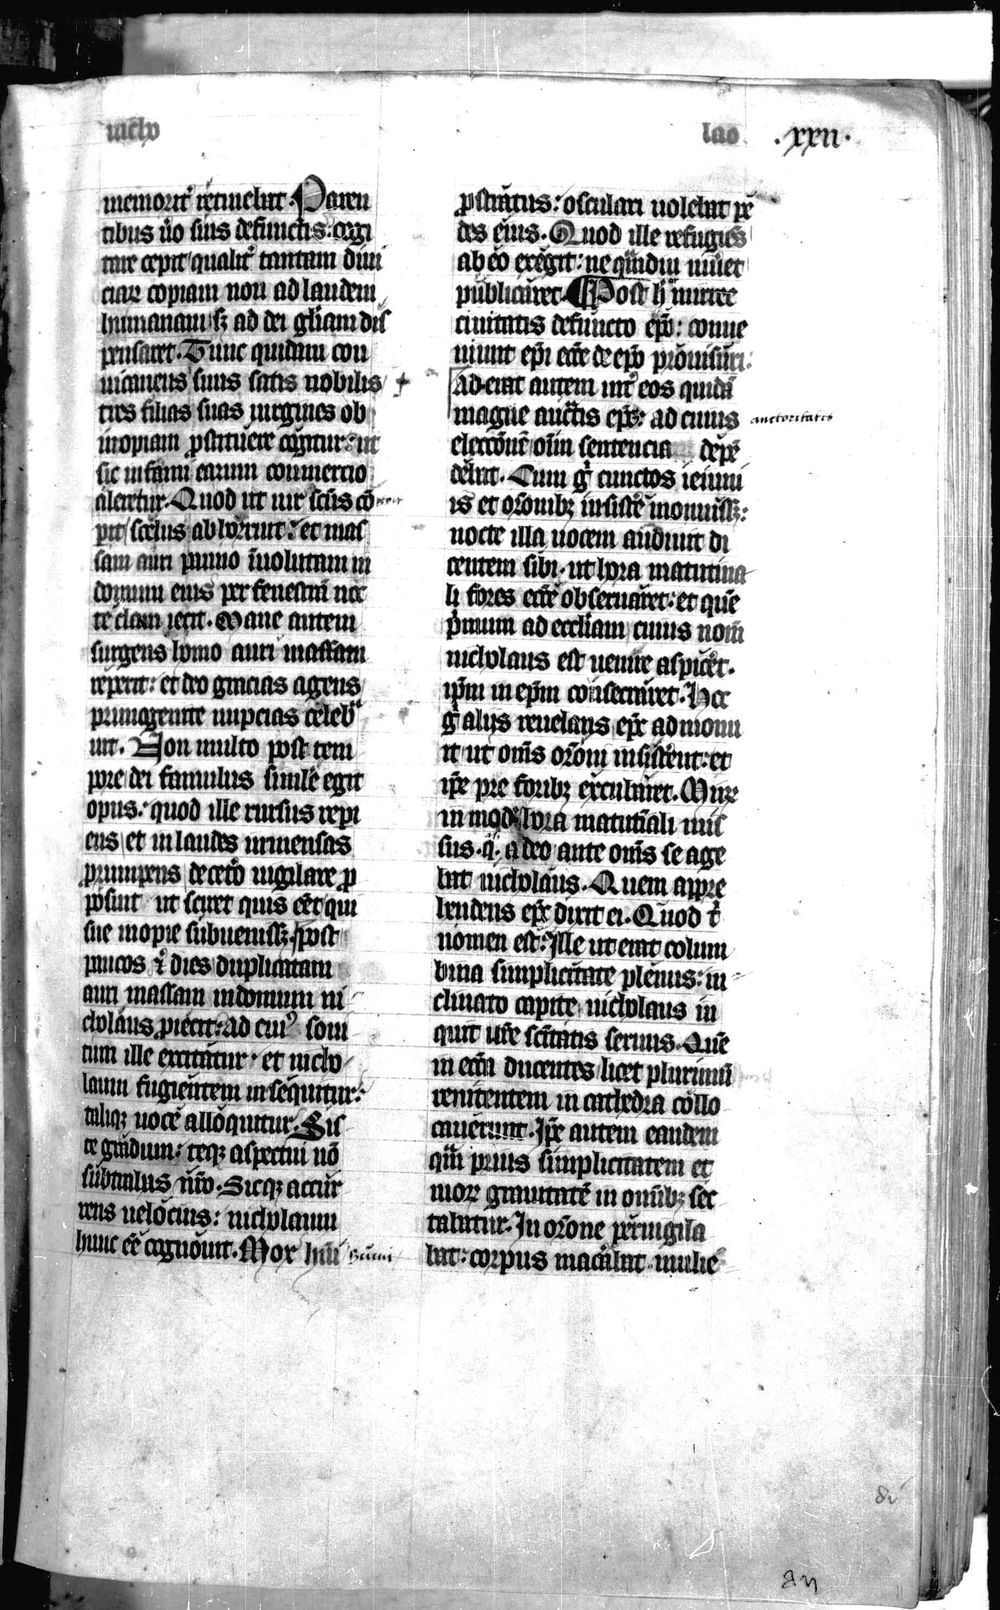 nicho
lao .xxii.
memorit᷑ retinebat. Paren
tibus u̾o suis defunctis: cogi
tare cepit qualit᷑ tantam diui
ciar̄ copiam non ad laudem
humanam sʒ ad dei gl̄iam dis
pensaret. Tunc quidam con
uicaneus suus satis nobilis
tres filias suas uirgines ob
inopiam ꝓstituere cogitur: ut
sic infami earum commercio
aleretur. Quod ut uir sc̄us cō
pit scelus abhorruit: et mas
sam auri panno inuolutam in
domum eius per fenestrā noc
te clam iecit. Mane autem
surgens homo auri massam
reperit: et deo gracias agens
primogenite nupcias celebͣ
uit. Non multo post tem
pore dei famulus simile egit
opus: quod ille rursus repi
ens et in laudes inmensas
ꝓrumpens de cet̾o uigilare ꝓ
posuit ut sciret quis eēt qui
sue inopie subuenissꝫ. Post
paucos ꝟ dies duplicatam
auri massam in domum ni
cholaus ꝓiecit: ad cuiꝰ soni
tum ille excitatur et nicho
laum fugientem insequitur:
taliqꝫ uoce alloquitur. Sis
te gradum: teqꝫ aspectui nō
subtrahas nr̄o. Sicqꝫ accur
rens uelocius: nicholaum
hunc eē cognouit. Mox humi
ꝓstratus: osculari uolebat pe
des eius. Quod ille refugiens
ab eo exegit: ne qͣmdiu uiu̾et
publicaret. Post hͨ mirree
ciuitatis defuncto ep̄o: conue
niunt ep̄i ecc̄e de ep̄o prouisuri:
Ad erat autem int̾ eos quidā
magne auct̄is ep̄s: ad cuius auctoritatis
elecc̄ōnē oīm sentencia depē
debat. Cum g̾ cunctos ieiuni
is et or̄onibꝫ insistere monuissꝫ:
nocte illa uocem audiuit di
centem sibi. ut hora matutina
li fores ecc̄e obseruaret: et quē
primum ad eccl̄iam cuius nom̄
nicholaus est uenire aspicēt.
ip̄m in ep̄m consecraret. Hec
g̾ alijs reuelans ep̄c admonu
it ut om̄s or̄oni insisterent: et
ip̄e pre foribꝫ excubaret. Mirͫ
in modū hora matutīali mis
sus. a. a deo ante om̄s se age
bat nicholaus. Quem appre
hendens ep̄c dixit ei. Quod t̾
nomen est: Ille ut erat colum
bina simplicitate plenus: in
clinato capite nicholaus in
quit ur̄e sc̄itatis seruus. Quē
in ecc̄m ducentes licet plurimū
renitentem in cathedra collo
cauerunt. Ip̄e autem eandem
qͣm prius simplicitatem et
mor̄ grauitatē in om̄ibꝫ sec
tabatur. In or̄one peruigila
bat: corpus macerabat. mulie